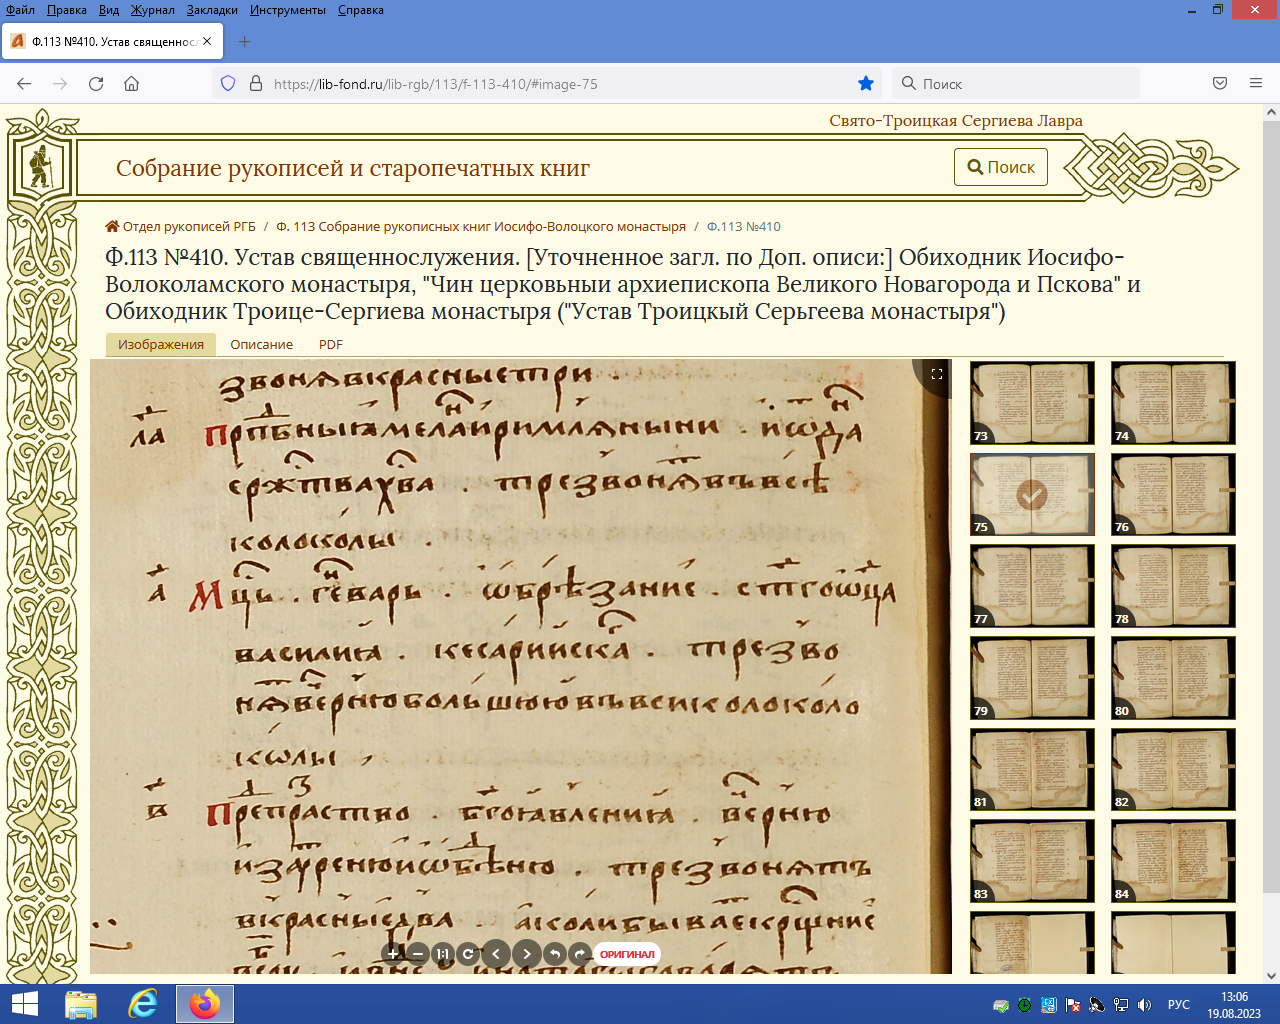 Файл Правка Вид Журнал Закладки Инструменты Справка
Ф.113 №410. Устав священносл
https://lib-fond.ru/lib-rgb/113/f-113-410/#image-75
Поиск
Свято-Троицкая Сергиева Лавра
Собрание рукописей и старопечатных книг
Поиск
Отдел рукописей РГБ / Ф. 113 Собрание рукописных книг Иосифо-Волоцкого монастыря / Ф.113 №410
Ф.113 №410. Устав священнослужения. [Уточненное загл. по Доп. описи:] Обиходник Иосифо-
Волоколамского монастыря, "Чин церковныи архиепископа Великого Новагорода и Пскова" и
Обиходник Троице-Сергиева монастыря ("Устав Троицкый Серьгеева монастыря")
Изображения Описание PDF
звонѧ в красные три .
ла прпбныѧ мелаи римлѧныни .
трезвонѧ въ всѣ
колоколы .
а Мць . генварь . ѡбрѣзание .
василиꙗ . кесарииска . трезво
нѧ вернюю большюю въ вси колоколо
кѡлы
в Препраство . бгоꙗвлениꙗ . верню
трезвонѧтъ
в красные два . а коли бывае
1:1
ОРИГИНАЛ
73 74
75 76
77 78
79 80
81 82
83 84
РУС
13:06
19.08.2023